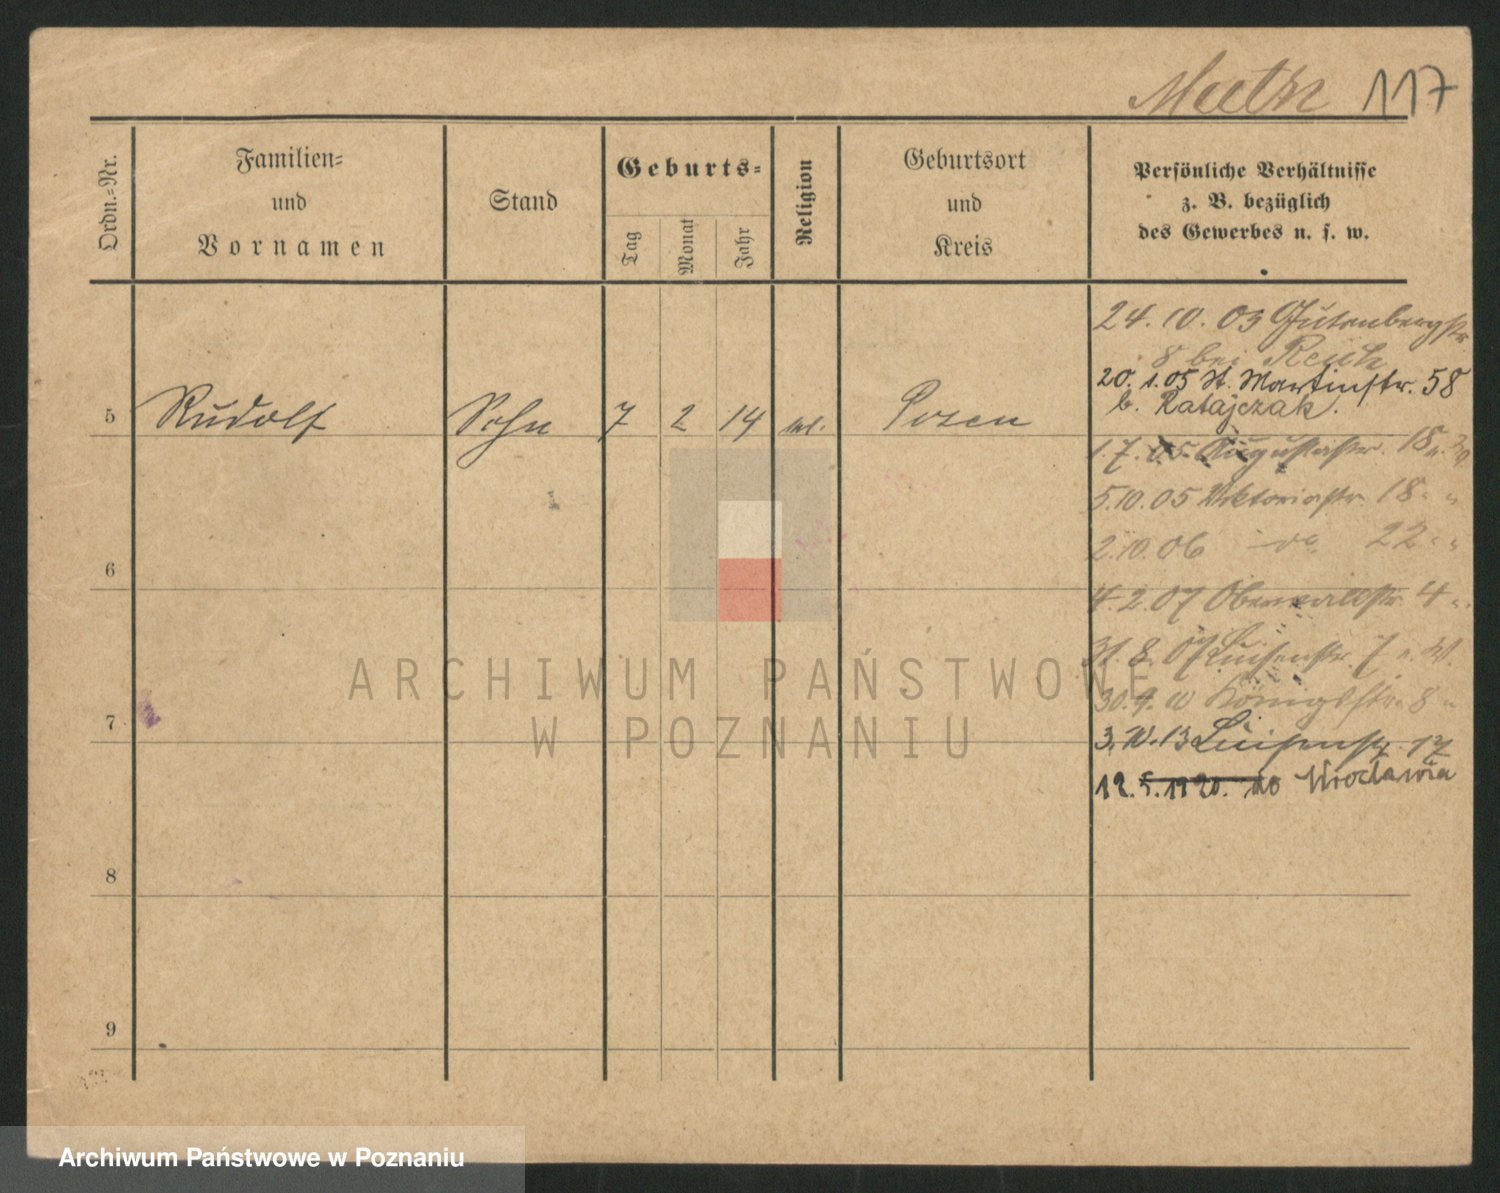 117
Ordn.-Nr.
Familien-
und
Vornamen
Stand
Geburts-
Tag
Monat
Jahr
Religion
Geburtsort
und
Kreis
Persönliche Verhältnisse
z. B. bezüglich
des Gewerbes u. s. w.
24. 10. 03 Gutenbergstr
8 bei
20. 1. 05 St. Martinstr. 58
b. Ratajczak.
5 Rudolf Sohn 7 2 14 Posen
1. 7. 05 Augustastr. 18
5. 10. 05 Viktoriastr. 18 " "
2. 10. 06 do 22 " "
6
4. 2. 07 Oberwallstr. 4 "
31. 8. 07 Luisenstr. 7
30. 9. 10 Königstr. 8 "
7
3. 10. 13 Luisenstr 17
12. 5. 1920. do Wrocławia
8
9
ARCHIWUM PAŃSTWOWE
W POZNANIU
Archiwum Państwowe w Poznaniu